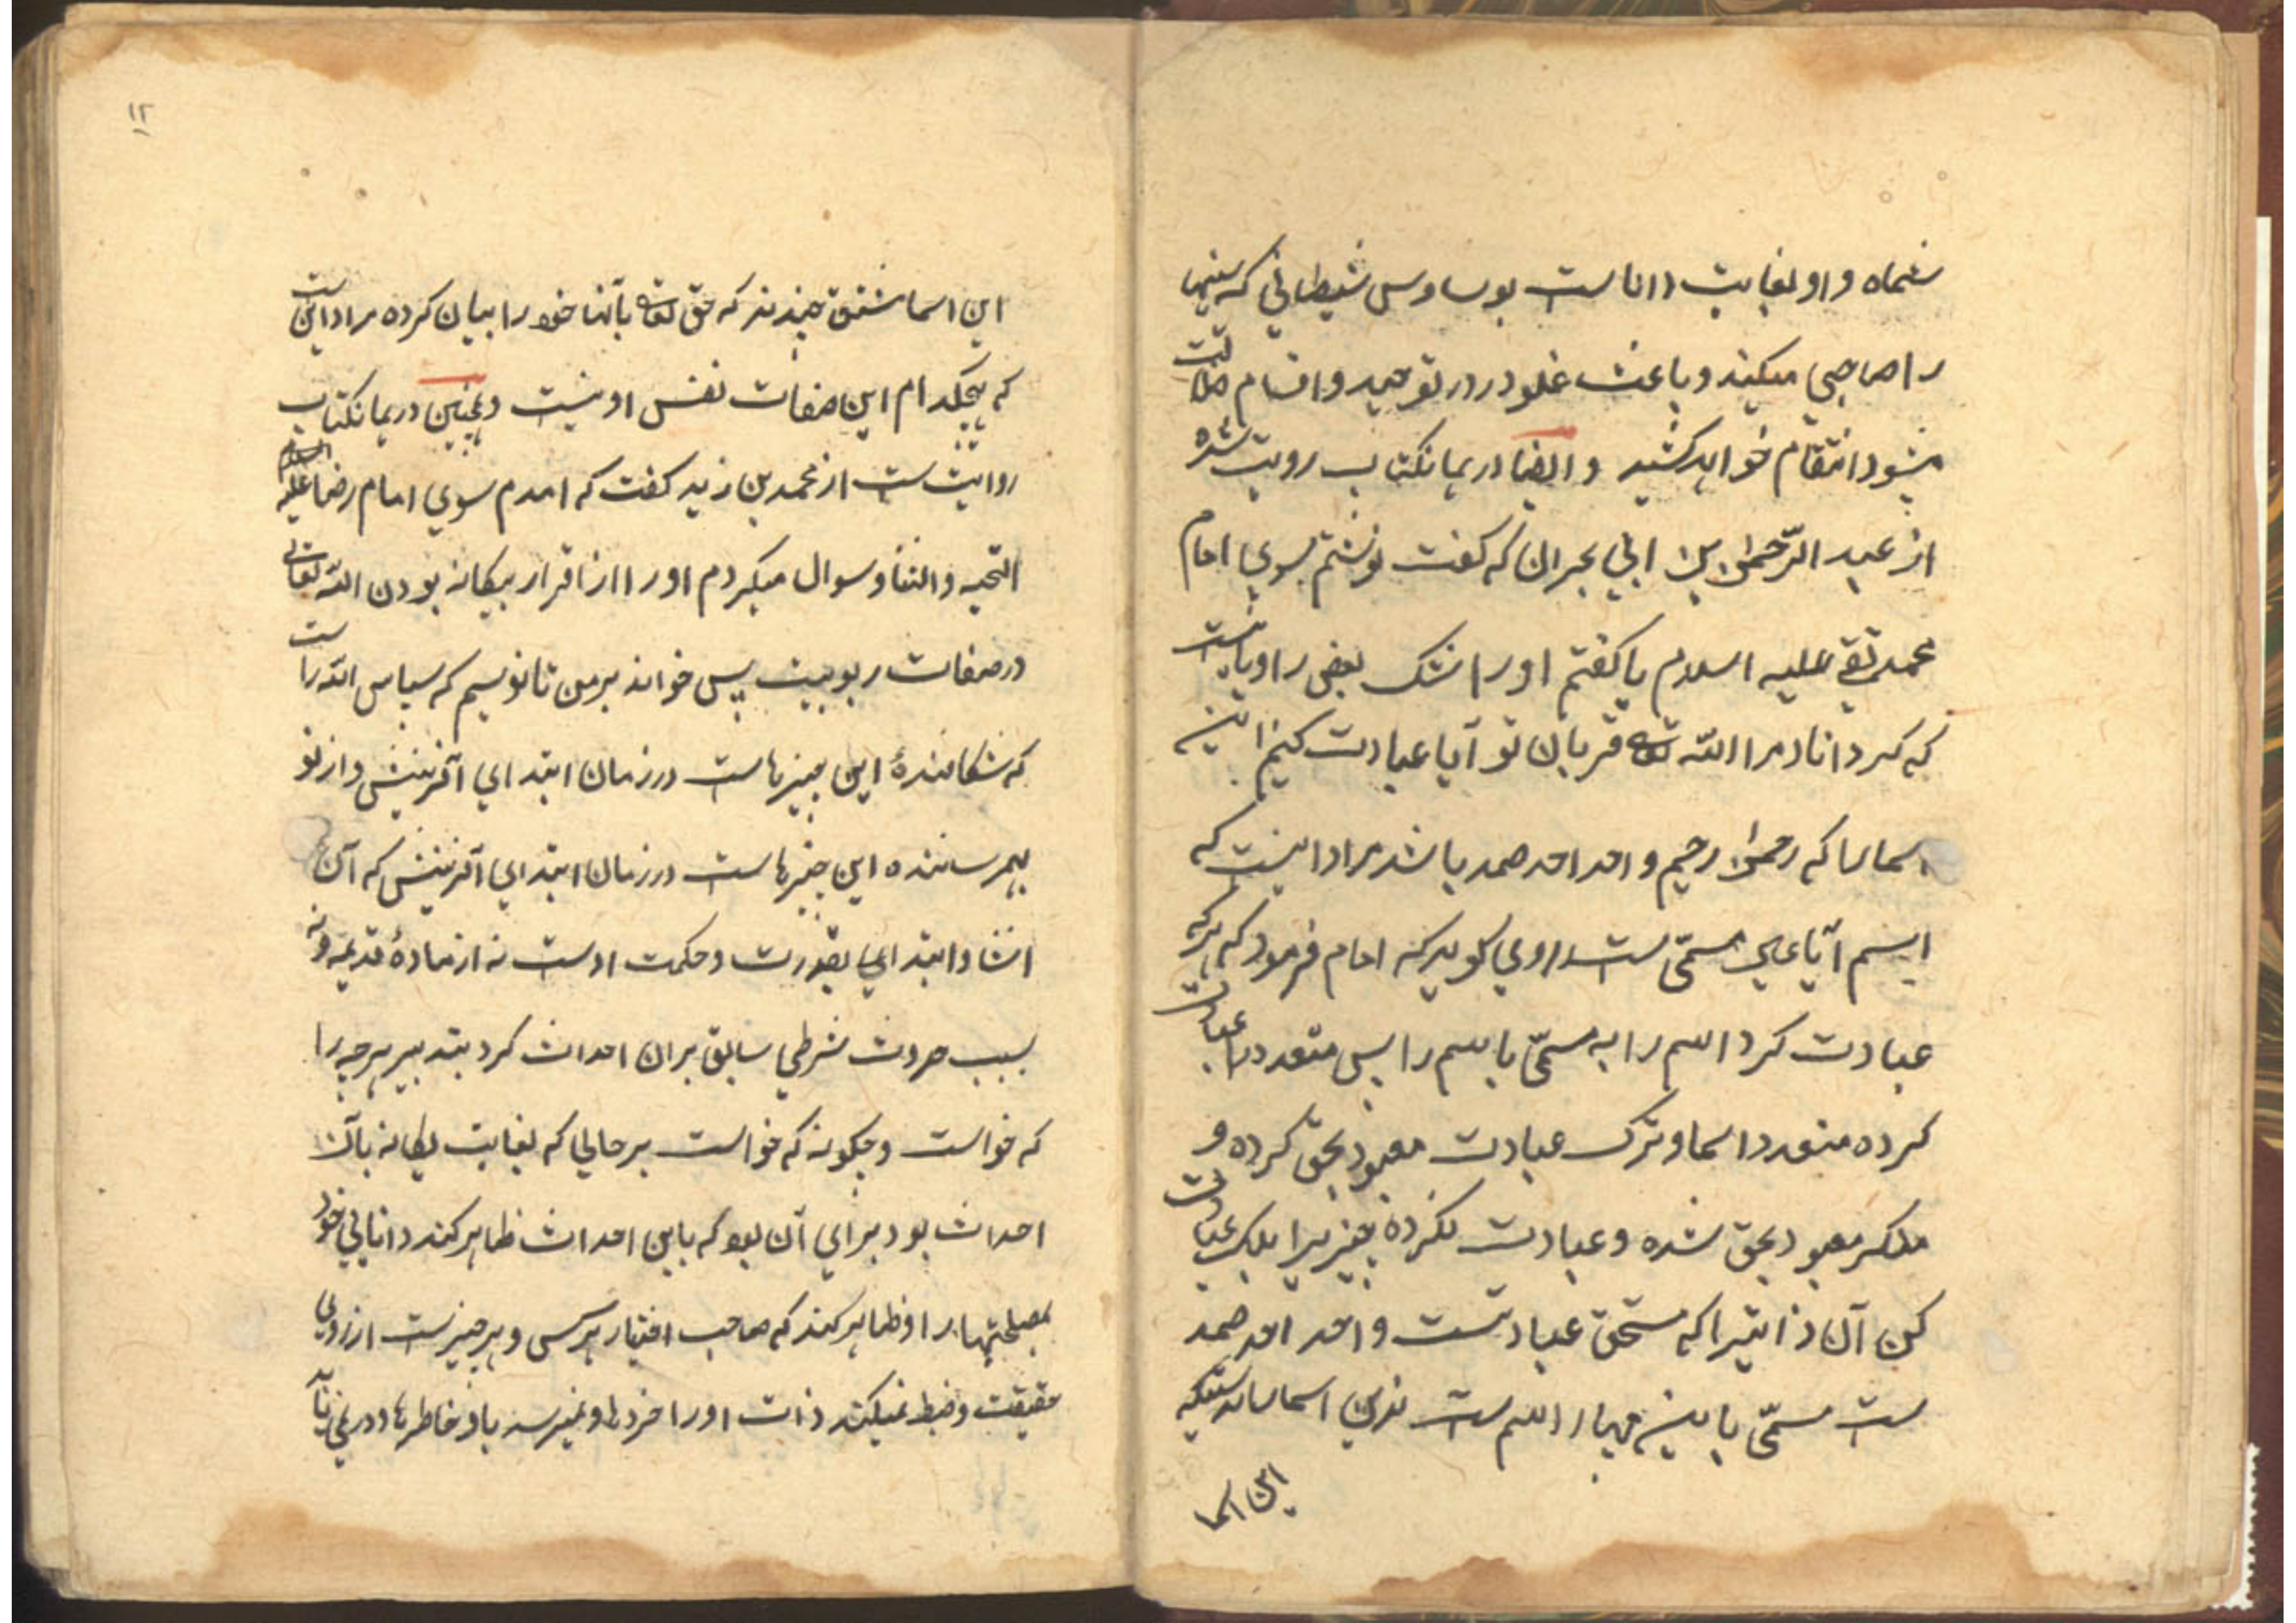 شماه و او بغایت داناست بوساوس شیطانی که سینها
را صاحبی میکیند و باعث غلو در در توحید و اقسام ضلالت
میشود انتقام خواهد کشید و ایضا در همانکتاب رویت شده
از عبد الرّحمٰن بن ابی بحران که کفت نوشتم بسوی امام
محمد تقی علیه السلام یا کفتم او را شک بعض راویانست
که کرداناد مرا اللّه تعه قربان تو آیا عبادت کنیم اینه
اسمارا که رحمٰن رحیم واحد احد صمد باشد مراد اینست که
اسم آیا عین مسمّی ست راوی کوید که امام فرمود که هرکه
عبادت کرد اسم را به مسمّی با اسم را پس متعدد را عبادت
کرده متعدد اسما و ترک عبادت معبود بحق کرده و
منکر معبود بحق شده و عبادت نکرده چیزیرا بلکه عبادت
کن آن ذاتیرا که مستحق عبادتست واحد احد صمد
ست مسمّی باینه چهار اسم ست بدون اسما بدرستیکه
این اسما
۱۲
این اسما مشتق چندند که حق تعه بآنها خود را بیان کرده مراد اینست
که هیچکدام این صفات نفس او نیست و همچنین در همانکتاب
روایت ست از محمد بن زید کفت که امدم سوی امام رضا علیه السلام
التحیه والثنا و سوال میکردم او را از اقرار بیکانه بودن اللّه تعالی
در صفات ربوبیت پس خواند بر من تا نویسم که سپاس اللّه راست
که شکافندهٔ این چیزهاست در زمان ابتدای آفرینش و از نو
بهم رساننده این چیزهاست در زمان ابتدای آفرینش که آن
انشا و ابتدای بقدرت و حکمت اوست نه از مادهٔ قدیمه و نه
بسبب حدوث شرطی سابق بران احداث کرد بتدبیر هرچه را
که خواست و چکونه که خواست بر حالی که بغایت یکانه بآن
احداث بود برای آن بود که باین احداث ظاهر کند دانایی خود
بمصلحتها را و ظاهر کند که صاحب اختیار هر کس و هر چیزست از روی
حقیقت و ضبط نمیکند ذات او را خردها و نمیرسد باو خاطرها و در نمی یابد